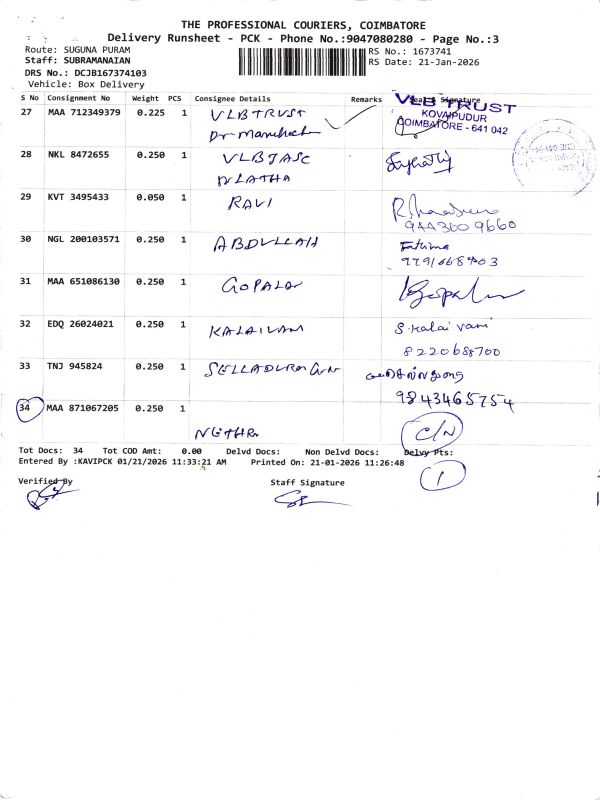 THE PROFESSIONAL COURIERS, COIMBATORE
Delivery Runsheet - PCK - Phone No.:9047080280 - Page No.:3
Route: SUGUNA PURAM
RS No.: 1673741
Staff: SUBRAMANAIAN
RS Date: 21-Jan-2026
DRS No.: DCJB167374103
Vehicle: Box Delivery
S No Consignment No Weight PCS Consignee Details Remarks Seal & Signature
27 MAA 712349379 0.225 1 VLB TRUST
VLB TRUST
KOVAIPUDUR
COIMBATORE - 641 042
28 NKL 8472655 0.250 1 VLBJASC
NLATHA
29 KVT 3495433 0.050 1 RAVI
944360 9660
30 NGL 200103571 0.250 1 ABDULLAH Fathima
9791668703
31 MAA 651086130 0.250 1 GOPALAN Gopalan
32 EDQ 26024021 0.250 1 KALAIVANI S. Kalai vani
8220688700
33 TNJ 945824 0.250 1
9843465754
34 MAA 871067205 0.250 1
NETHRA C/N
Tot Docs: 34 Tot COD Amt: 0.00 Delvd Docs: Non Delvd Docs: Delvy Pts:
Entered By :KAVIPCK 01/21/2026 11:33:21 AM Printed On: 21-01-2026 11:26:48
1
Verified By Staff Signature